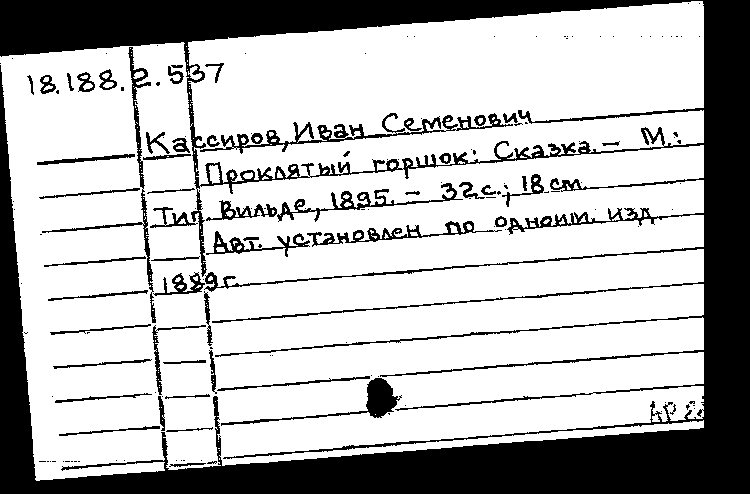 18.188.2.537
Кассиров, Иван Семенович
Проклятый горшок: Сказка. – М.:
Тип. Вильде, 1895. – 32 с.; 18 см.
Авт. установлен по одноим. изд.
1889 г.
АР